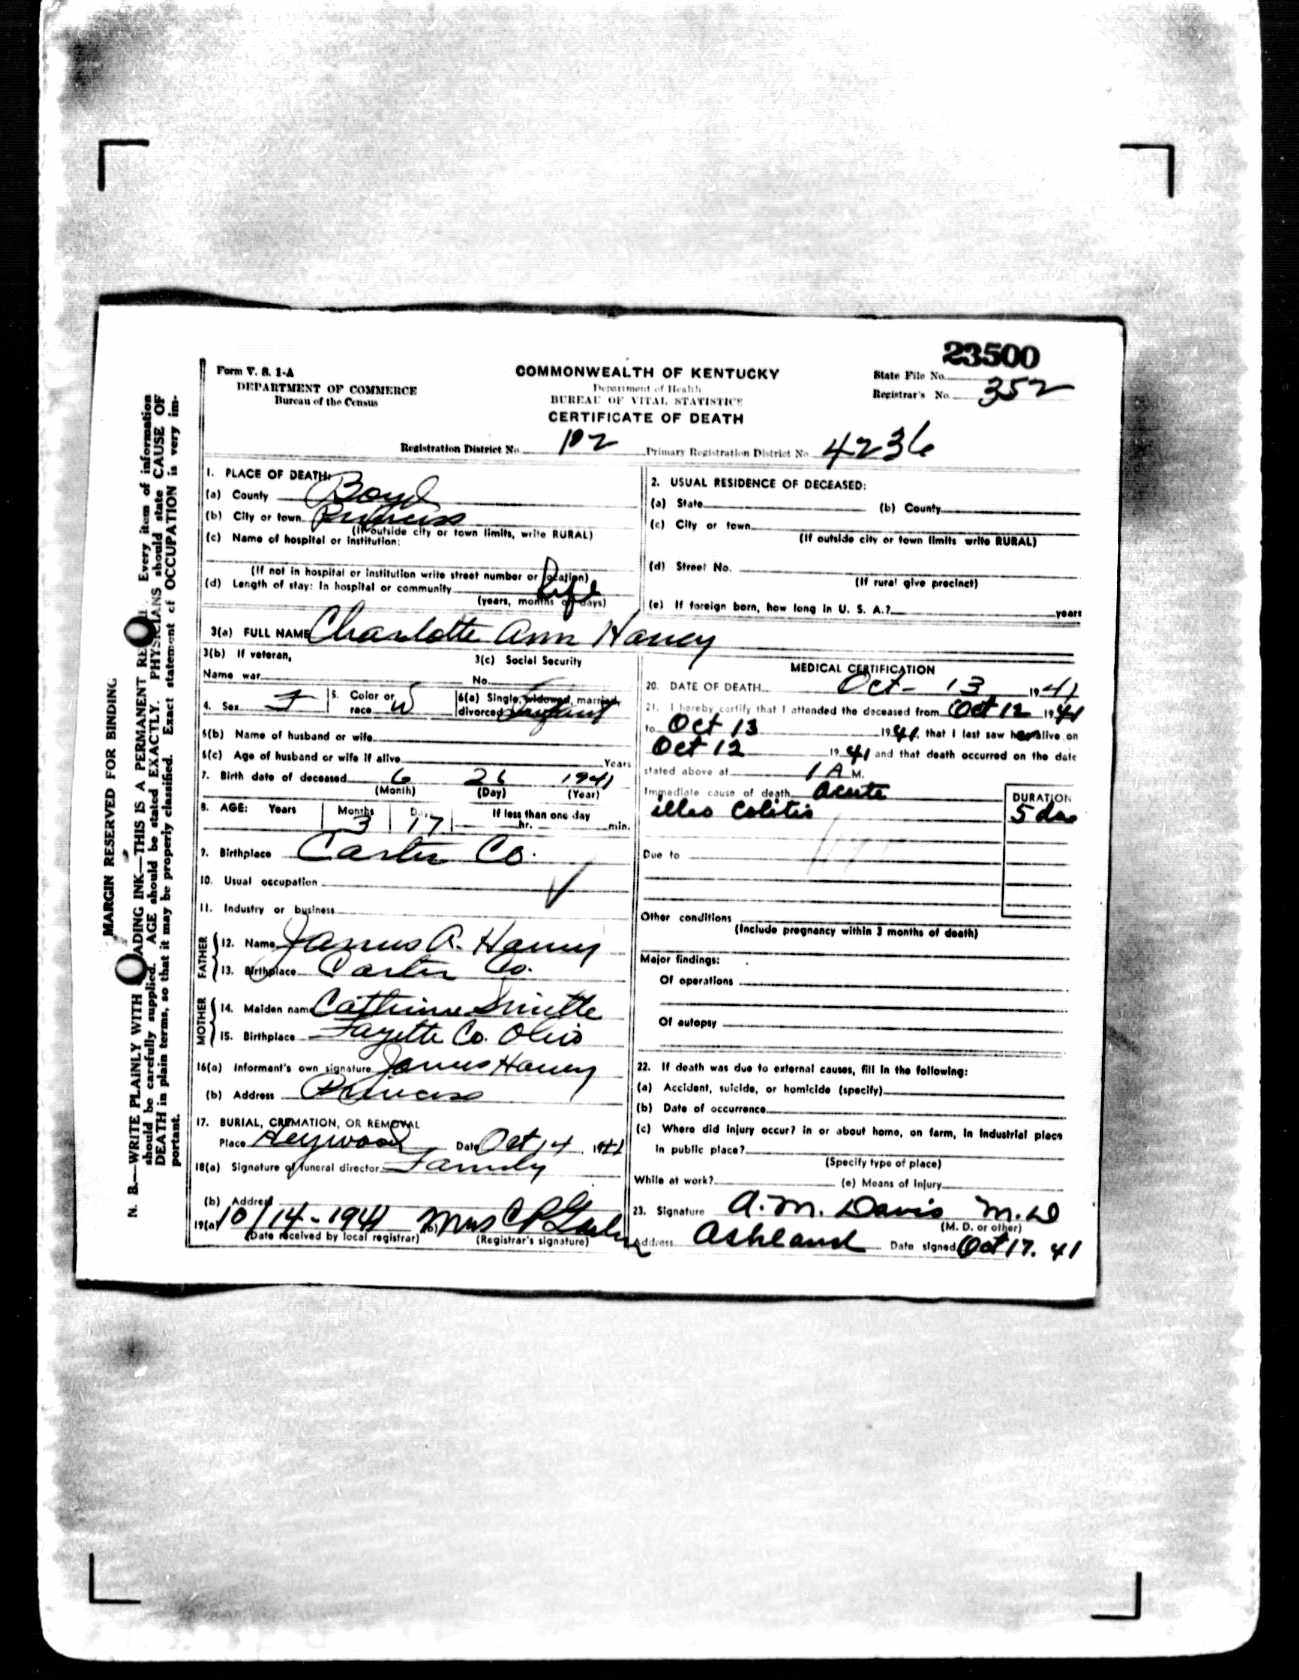 23500
Form V. S. 1-A
DEPARTMENT OF COMMERCE
Bureau of the Census
COMMONWEALTH OF KENTUCKY
Department of Health
BUREAU OF VITAL STATISTICS
CERTIFICATE OF DEATH
State File No.
Registrar's No. 352
Registration District No. 102
Primary Registration District No. 4236
MARGIN RESERVED FOR BINDING
N. B.—WRITE PLAINLY WITH ADING INK—THIS IS A PERMANENT RE Every item of information
should be carefully supplied. AGE should be stated EXACTLY. PHYSICIANS should state CAUSE OF
DEATH in plain terms, so that it may be properly classified. Exact statement of OCCUPATION is very im-
portant.
1. PLACE OF DEATH:
(a) County Boyd
(b) City or town Princess
(If outside city or town limits, write RURAL)
(c) Name of hospital or institution:
(If not in hospital or institution write street number or location)
(d) Length of stay: In hospital or community Life
(years, months or days)
2. USUAL RESIDENCE OF DECEASED:
(a) State (b) County
(c) City or town
(If outside city or town limits write RURAL)
(d) Street No.
(If rural give precinct)
(e) If foreign born, how long in U. S. A.? years
3(a) FULL NAME Charlotte Ann Haney
3(b) If veteran,
Name war
3(c) Social Security
No.
4. Sex F 5. Color or race W 6(a) Single, widowed, married, divorced Infant
6(b) Name of husband or wife
6(c) Age of husband or wife if alive Years
7. Birth date of deceased 6 26 1941
(Month) (Day) (Year)
8. AGE: Years Months 3 Days 17 If less than one day
hr. min.
9. Birthplace Carter Co.
10. Usual occupation
11. Industry or business
FATHER
12. Name James A. Haney
13. Birthplace Carter Co.
MOTHER
14. Maiden name Cathrine
15. Birthplace Fayette Co. Ohio
16(a) Informant's own signature James Haney
(b) Address Princess
17. BURIAL, CREMATION, OR REMOVAL
Place Heywood Date Oct 14 1941
18(a) Signature of funeral director Family
(b) Address
19(a) 10/14-1941 (b) Mrs C P
(Date received by local registrar) (Registrar's signature)
MEDICAL CERTIFICATION
20. DATE OF DEATH Oct- 13 1941
21. I hereby certify that I attended the deceased from Oct 12 1941
to Oct 13 1941, that I last saw her alive on
Oct 12 1941 and that death occurred on the date
stated above at 1 A M.
Immediate cause of death Acute
illeo colitis
DURATION
5 das
Due to
Other conditions
(Include pregnancy within 3 months of death)
Major findings:
Of operations
Of autopsy
22. If death was due to external causes, fill in the following:
(a) Accident, suicide, or homicide (specify)
(b) Date of occurrence
(c) Where did injury occur? in or about home, on farm, in industrial place
in public place?
(Specify type of place)
While at work? (e) Means of Injury
23. Signature A. M. Davis M. D
(M. D. or other)
Address Ashland Date signed Oct 17. 41